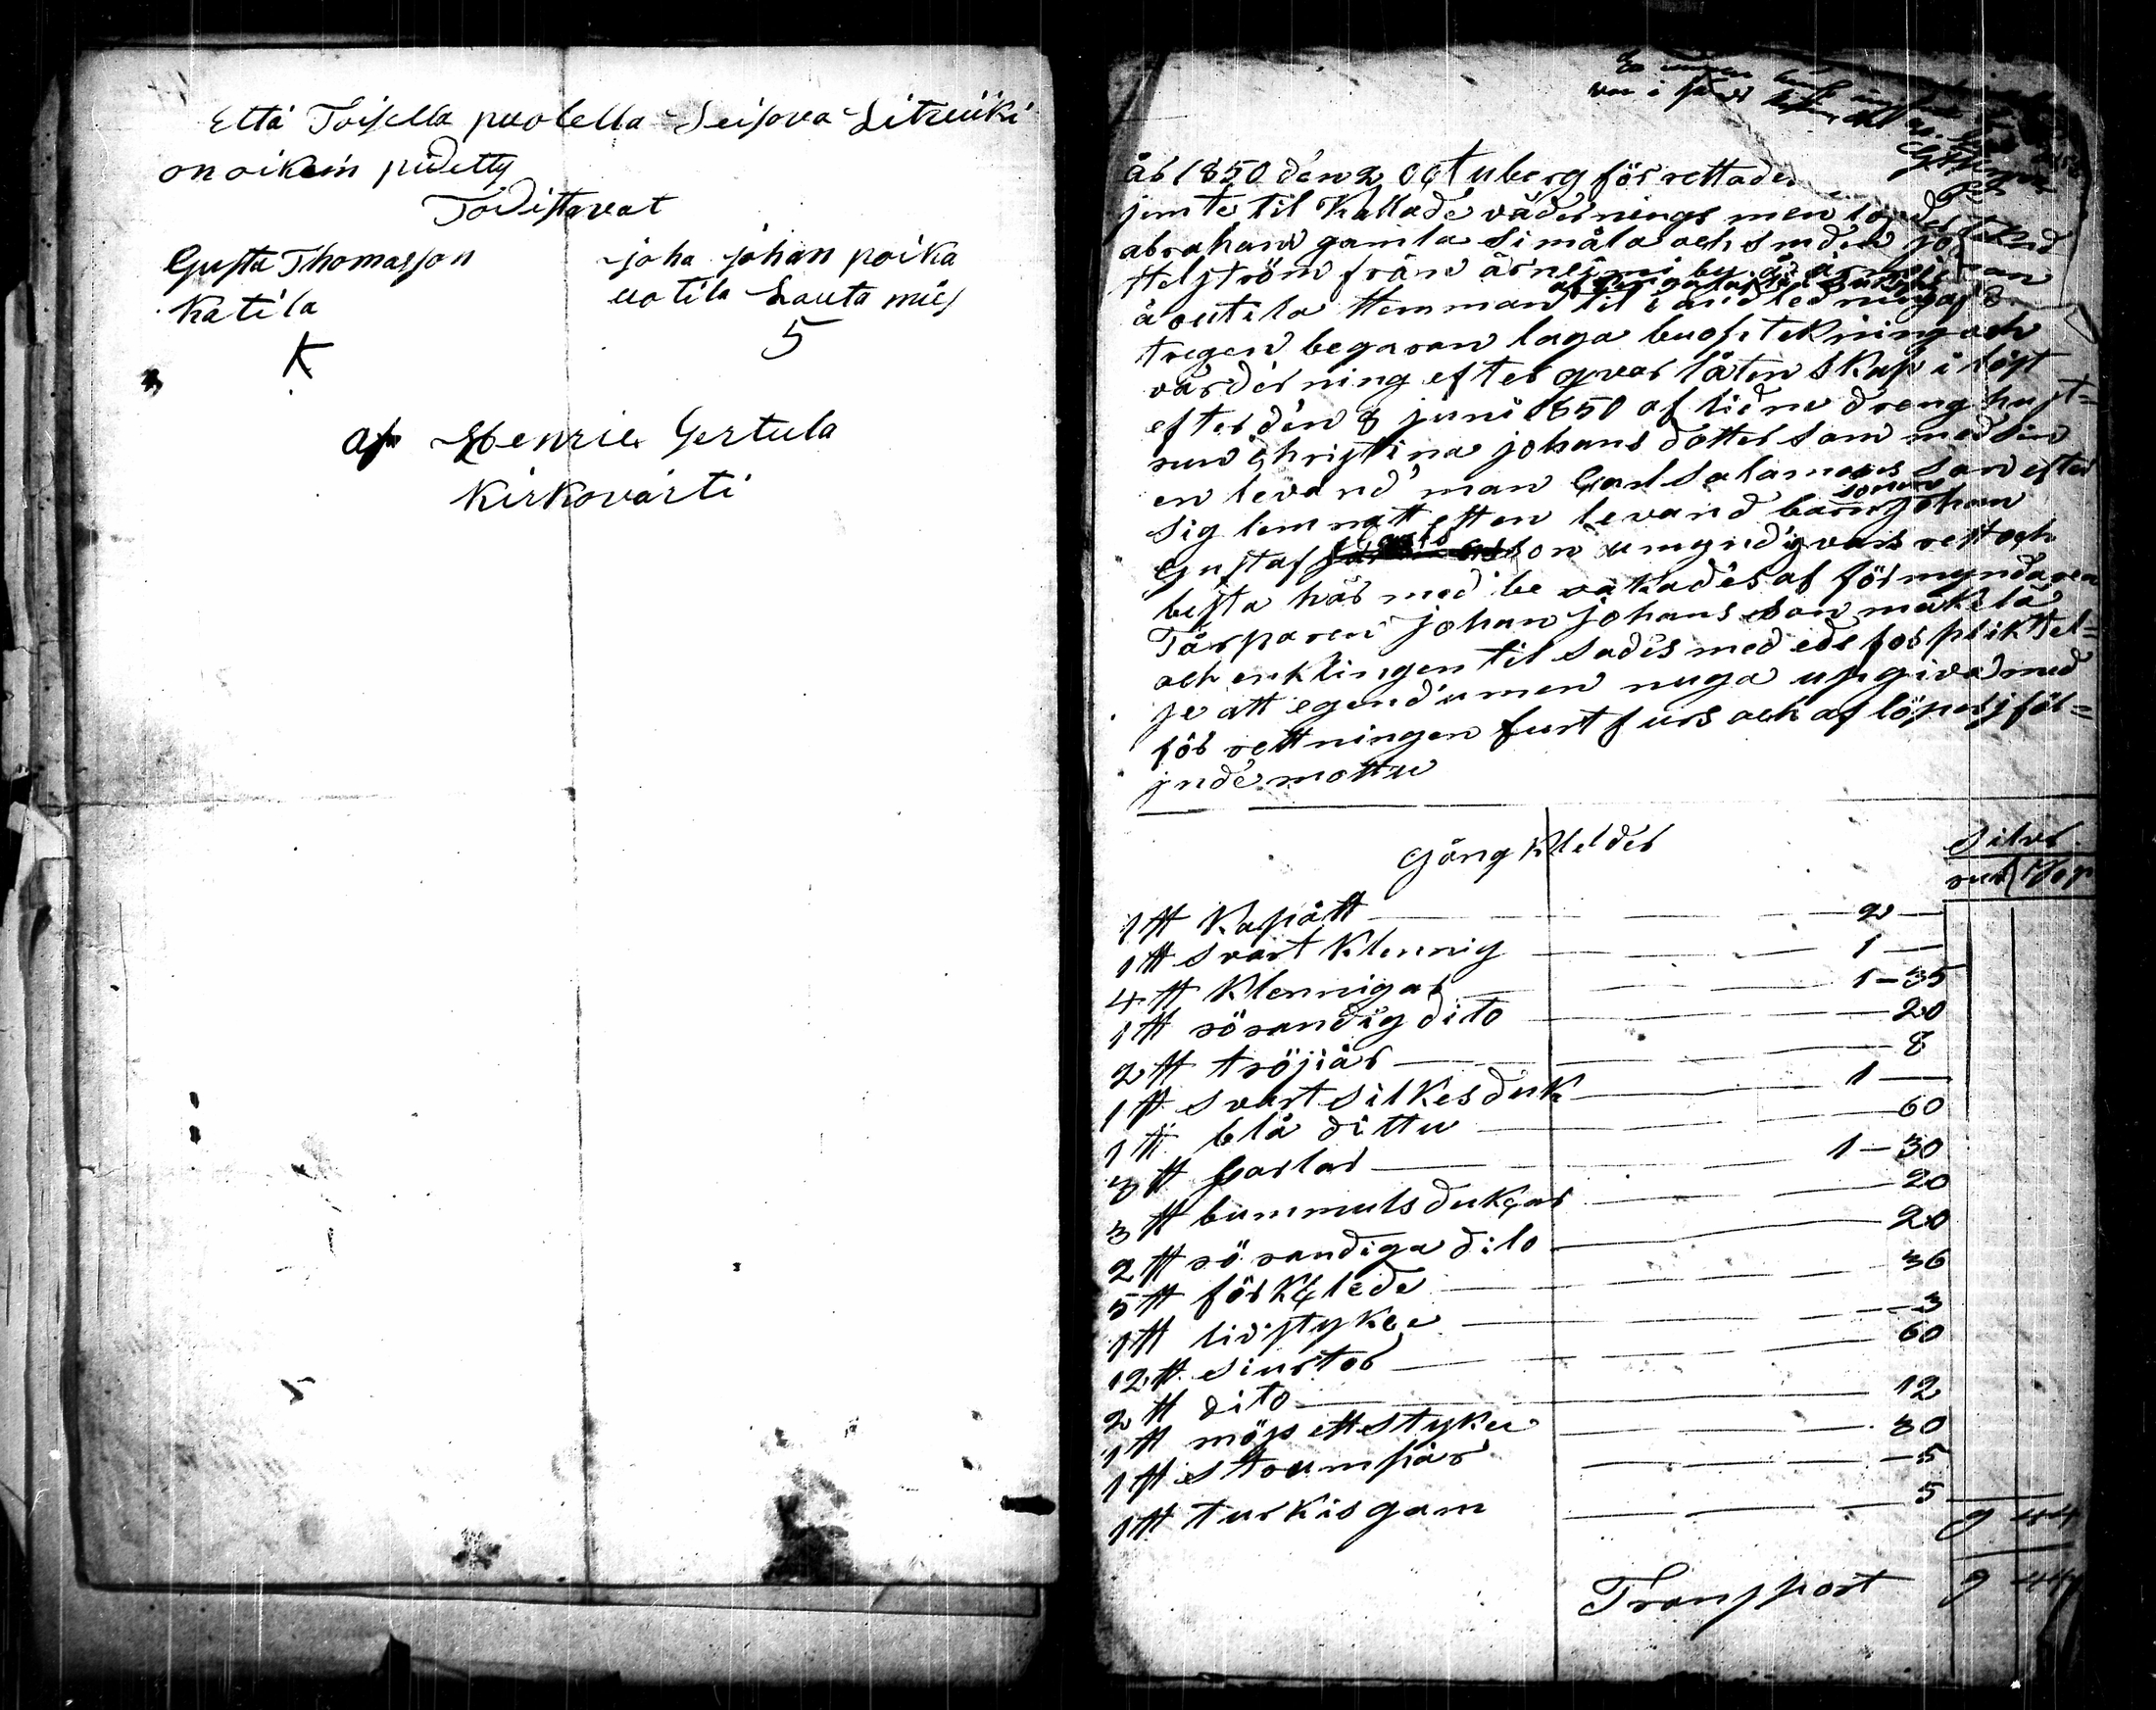 Että Toisella puolella Seisova Sitruiki
on oikein pidetty
Todistavat
Gusta Thomasson
Katila
K
joha johan poika
uotila Lauta mies
5
af Henric Gertula
Kirkovärti
år 1850 den 2 octuberg för rettades
jemte til Kallade väderings men
abraham gamla Simåla och smden
Stelström från ärneimi by
å outila Hemman til i anledning af
tregen begäran laga buopteKning och
värdering efter qvar låten skap i löst
efter den 8 juni 1850 af lidne dreng hust=
run christina johans dotter som med sin
en levand man Carl salamons son efter
sig lemnatt etten levand barn sonen johan
Gustaf Carls son umyndig vars rett och
besta här med be vakades af förmyndaren
Tårparen johan johans son makila
och enklingen til sades med ede for pliktel=
se att egendumen nuga upgiva med
för rettningen furt furs och af löpets föl=
jnde mottu
Gång Kleder
Silver
rub Kop
1 tt Kapått 2
1 tt svart Klennig 1
4 tt Klennigar 1-35
1 tt rö randig dito 20
2 tt tröjiär 8
1 tt svart silkes duk 1
1 tt blå dittu 60
3 tt Garlar 1-30
3 tt bummuls dukar 20
2 tt rö randiga dito 20
5 tt förklede 36
1 tt livstyke 3
12 tt siurtor 60
2 tt dito 12
1 tt möss ett styke 30
1 tt strumpär 5
1 tt turkis gam 5
9 44
Transport 9 44